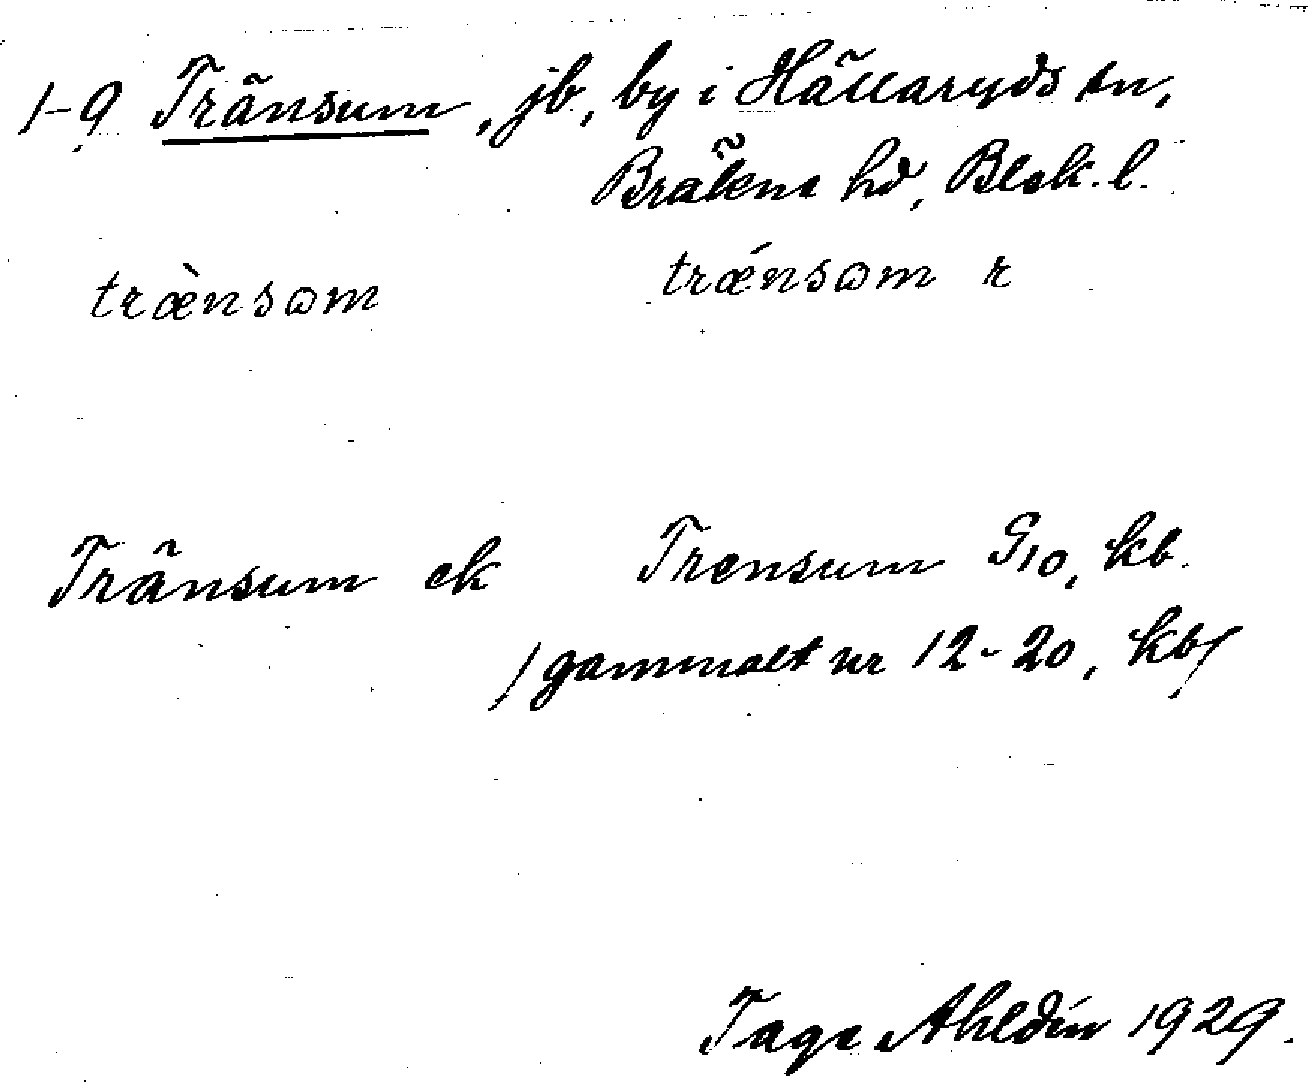 1-9 Tränsum, jb, by i Hällaryds sn,
Bräkne hd, Blek. l.
trænsom trǽnsom r
Tränsum ek Trensum G10, kb.
/gammalt nr 12-20, kb/
Tage Ahldin 1929.